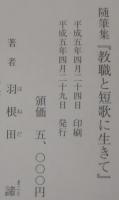 随筆集『教職と短歌に生きて』
平成五年四月二十四日 印刷
平成五年四月二十九日 発行
頒価 五、〇〇〇円
著者 羽根田 諦
はねだ